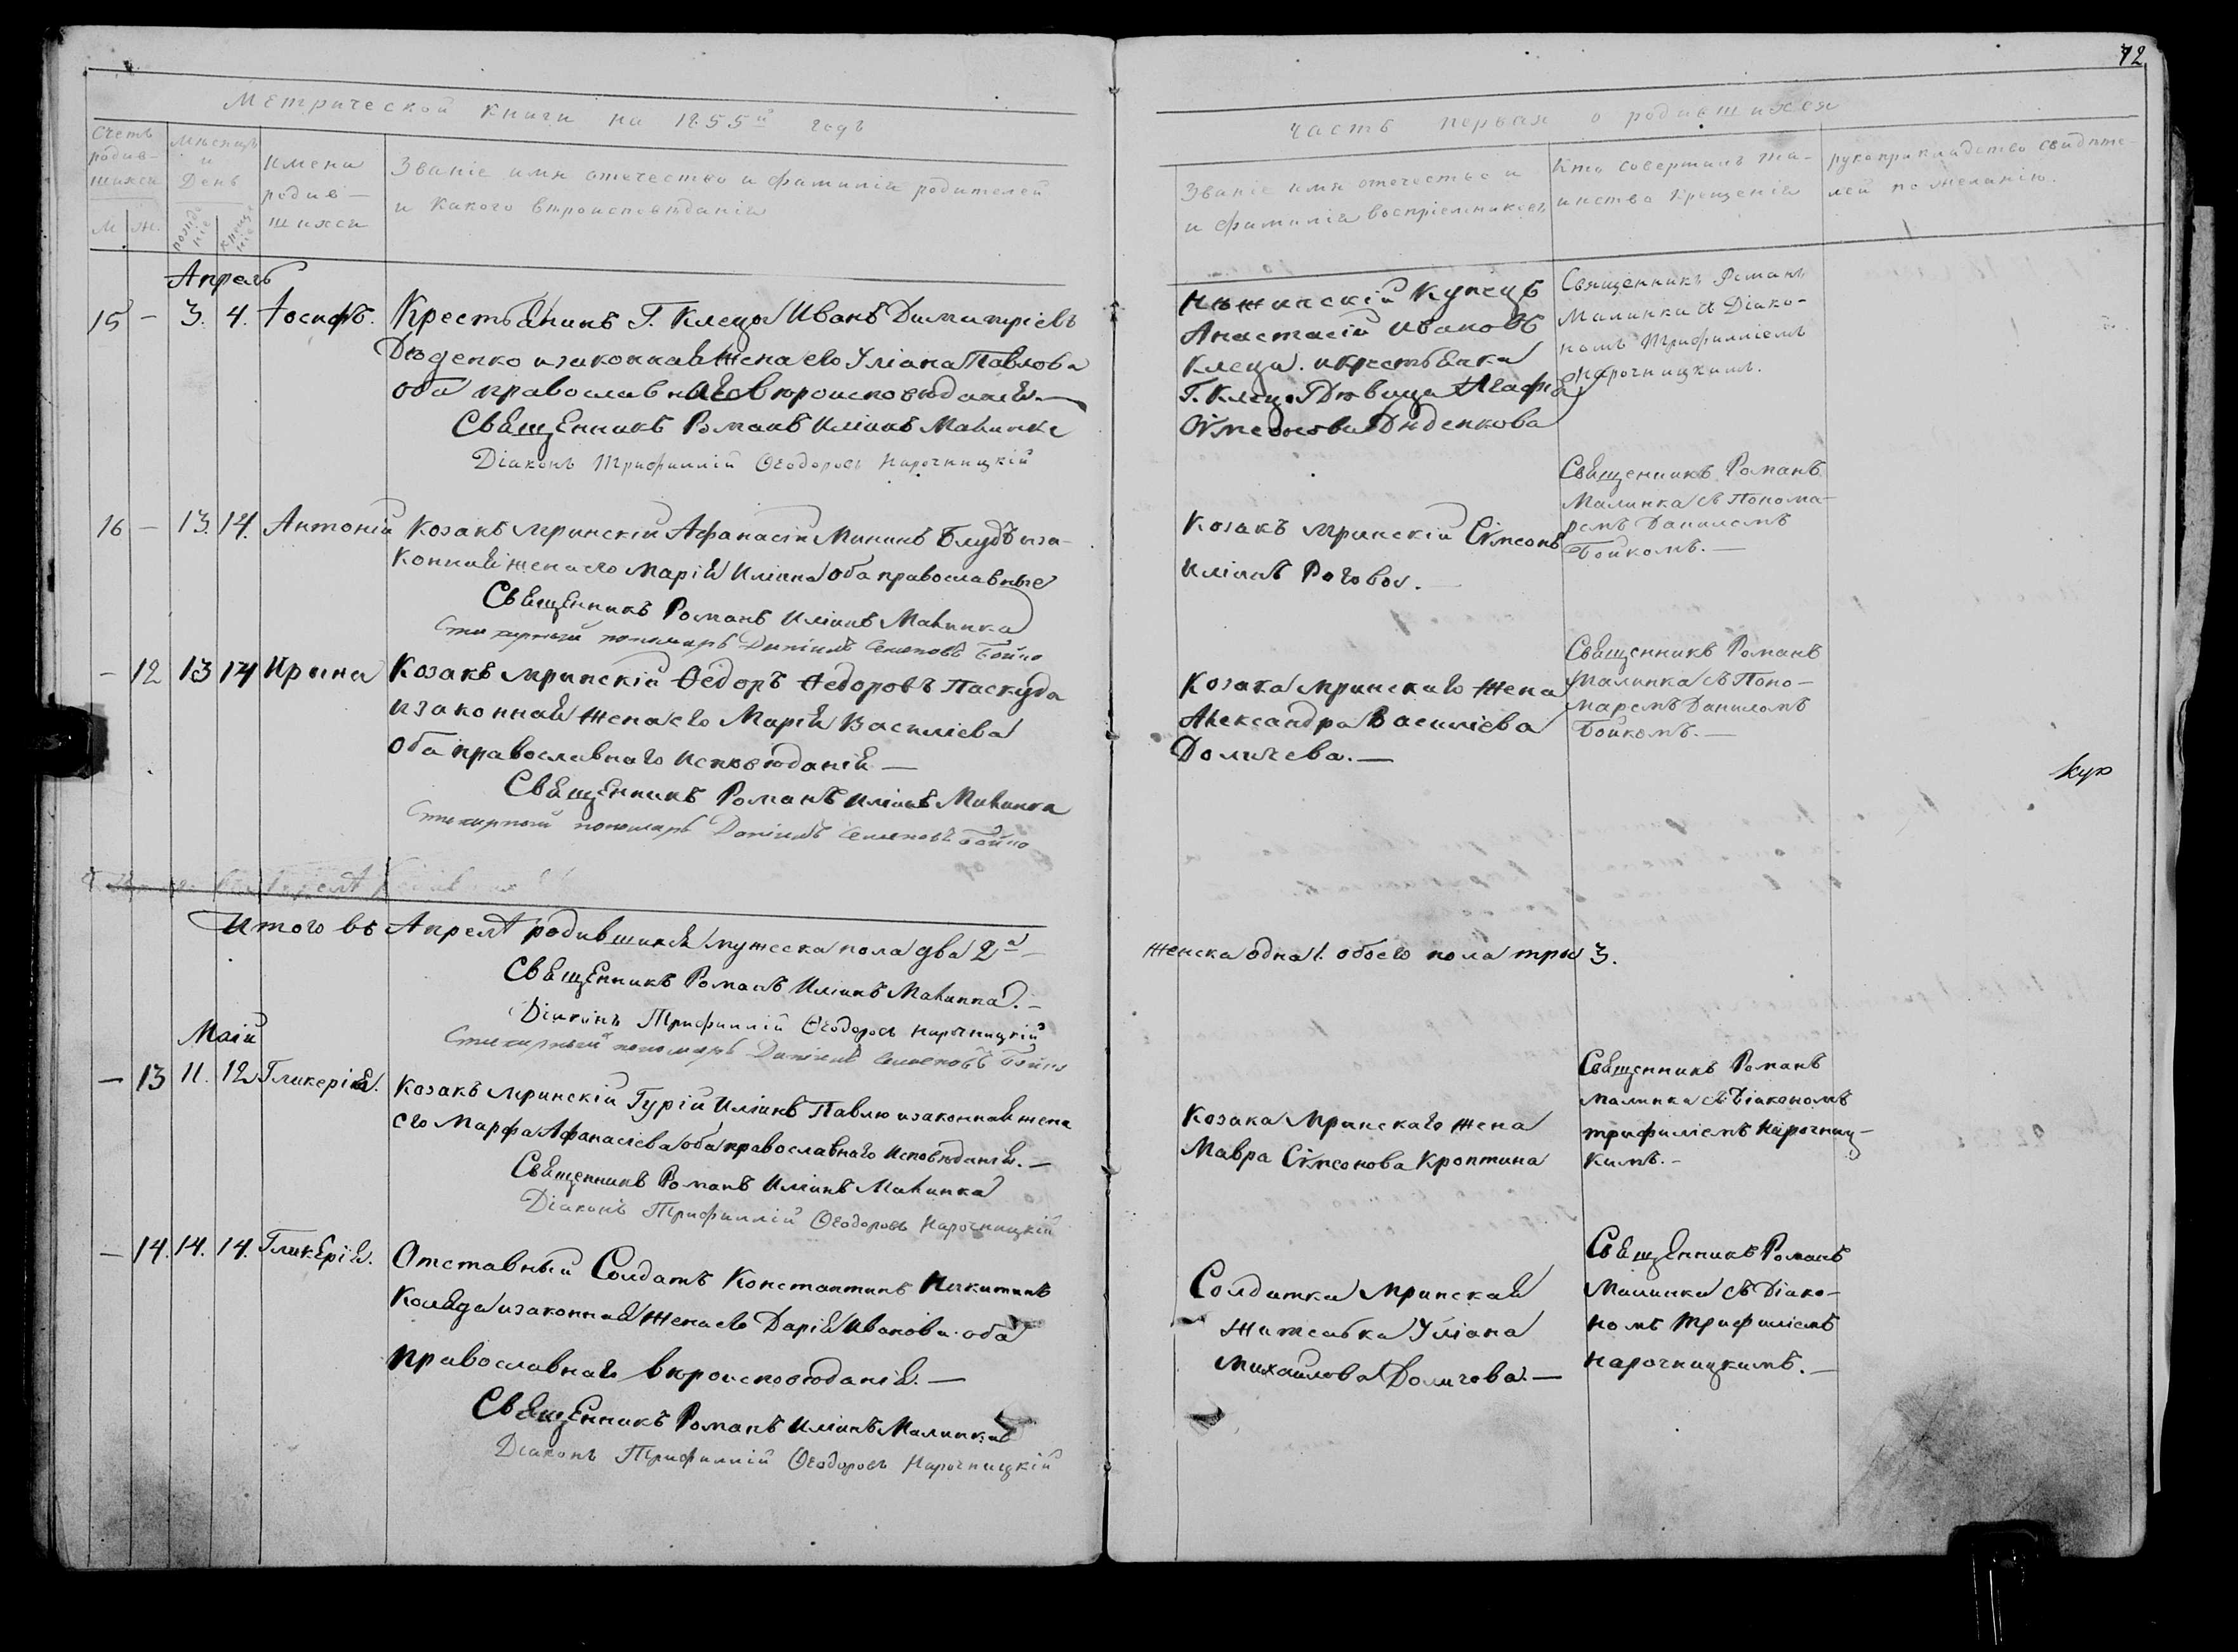 72
Метрической книги на 1855й годъ
Часть первая о родившихся
Счетъ родив-шихся
М. Ж.
Мѣсяцъ и День
рожденіе крещеніе
Имена родив-шихся
Званіе имя отечество и фамилія родителей
и какого вѣроисповѣданія
Званіе имя отечество и
и фамилія воспріемниковъ
Кто совершилъ та-
инство крещенія
рукоприкладство свидѣте-
лей по желанію.
Апрель
15 – 3. 4. Іосифъ.
Крестьянинъ Г. Клеца Иванъ Димитріевъ
Дѣденко изаконная жена его Уліана Павлова
оба православнаго вѣроисповѣданія.—
Священникъ Романъ Иліинъ Малинка
Діаконъ Трифиллій Ѳеодоровъ Нарочницкій
Нѣжинскій купецъ
Анастасій Ивановъ
Клеца. икрестьянка
Г. Клеца Дѣвица Агафia
Сѵмеонова Дѣденкова
Священникъ Романъ
Малинка съ Діако-
номъ Трифилліемъ
Нарочницкимъ.
16 – 13. 14. Антоній
Козакъ мринскій Афанасій Мининъ Блудъ иза-
конная жена его Марія Иліина оба православные
Священникъ Романъ Иліинъ Малинка
Стихарный пономарь Даніилъ Семеновъ Бойко
Козакъ мринскій Сѵмеонъ
Иліинъ Роговой.—
Священникъ Романъ
Малинка съ Понома-
ремъ Даниломъ
Бойкомъ.—
– 12 13 14 Ирина
Козакъ мринскій Ѳедоръ Ѳедоровъ Паскуда
изаконная жена его Марія Василіева
оба православнаго исповѣданія —
Священникъ Романъ Иліинъ Малинка
Стихарный пономарь Даніилъ Семеновъ Бойко
Козака мринскаго жена
Александра Василіева
Доличева.—
Священникъ Романъ
Малинка съ Поно-
маремъ Даниломъ
Бойкомъ.—
Итого въ Апрелѣ родившихся мужеска пола два 2а –
женска одна 1. обоего пола три 3.
Священникъ Романъ Иліинъ Малинка.–
Діаконъ Трифиллій Ѳеодоровъ Нарочницкій
Стихарный пономарь Даніилъ Семеновъ Бойко
Маій
– 13 11. 12 Гликерія.
Козакъ мринскій Гурій Иліинъ Павлю изаконная жена
его Марфа Афанасіева оба православнаго исповѣданія.–
Священникъ Романъ Иліинъ Малинка
Діаконъ Трифиллій Ѳеодоровъ Нарочницкій
Козака мринскаго жена
Мавра Сѵмеонова Кроптина
Священникъ Романъ
Малинка съ Діакономъ
трифиліемъ Нарочниц-
кимъ.–
– 14. 14. 14. Гликерія.
Отставный Солдатъ Константинъ Никитинъ
Коляда изаконная жена его Дарія Иванова оба
православнаго вѣроисповѣданія.—
Священникъ Романъ Иліинъ Малинка
Діаконъ Трифиллій Ѳеодоровъ Нарочницкій
Солдатка мринская
жителька Уліана
Михаилова Доличова.—
Священникъ Романъ
Малинка съ Діако-
номъ Трифиліемъ
Нарочницкимъ.—